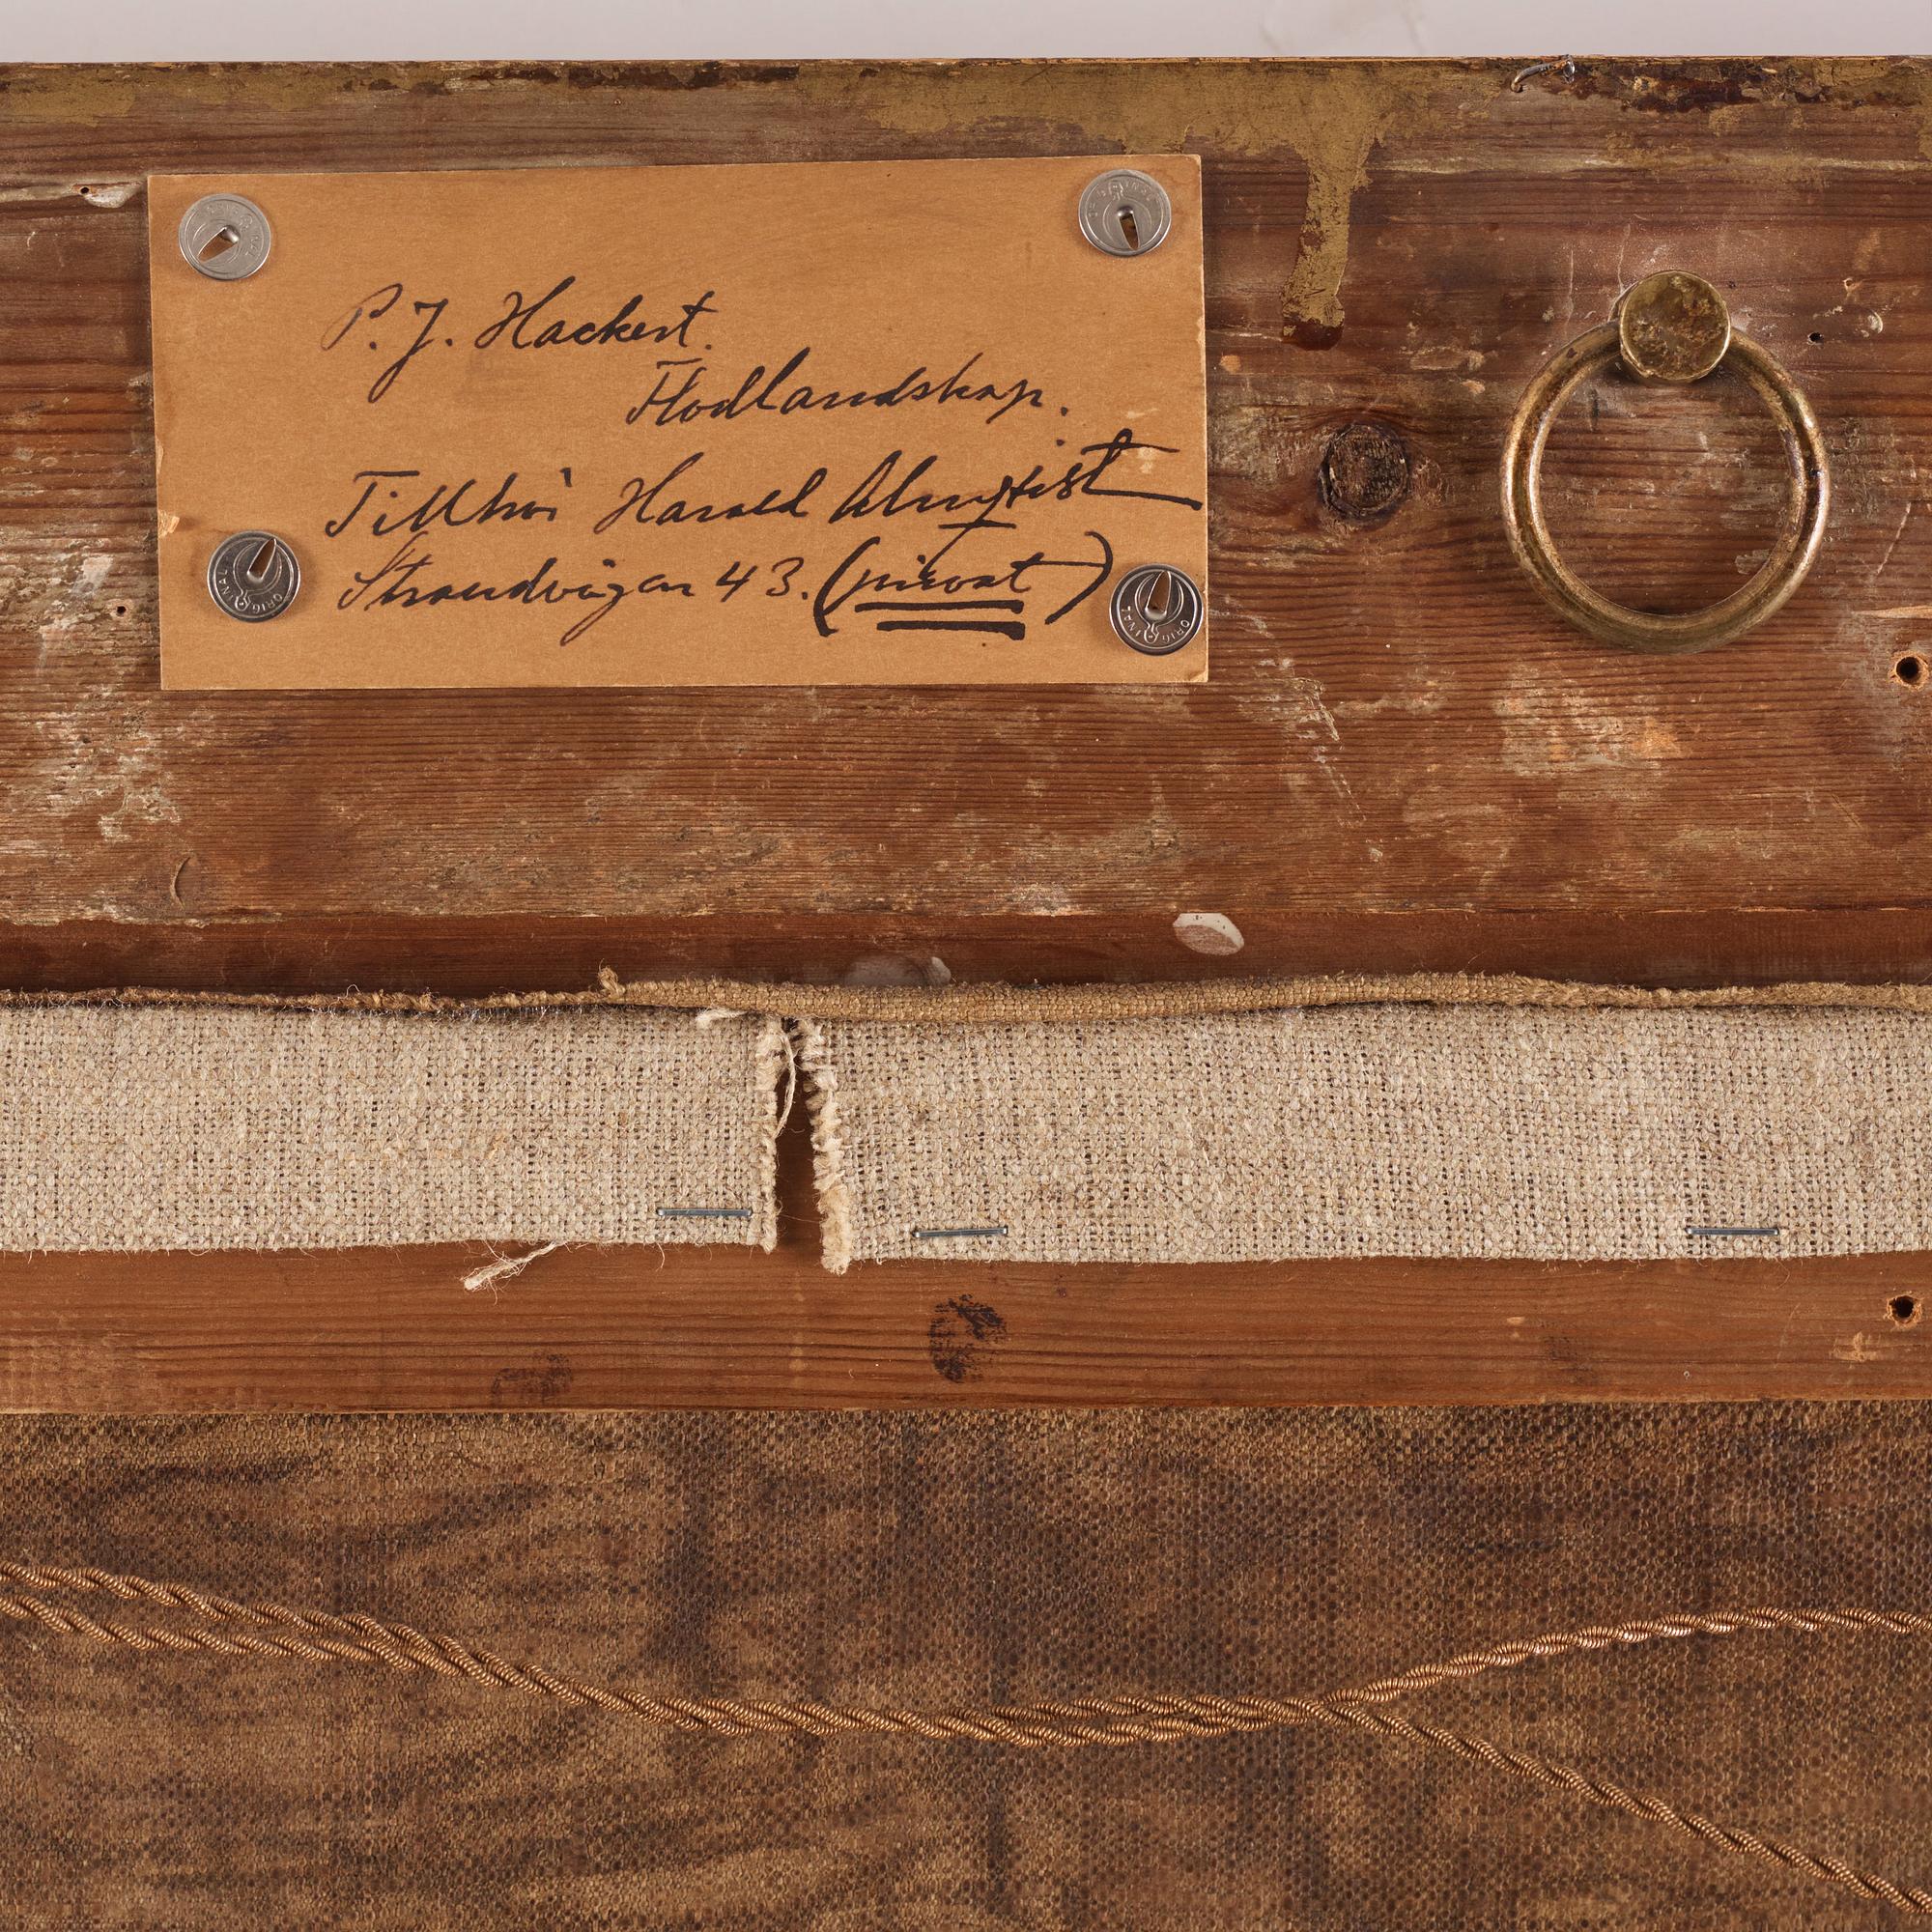 P. J. Hackert.
Flodlandskap.
Tillhör Harald Almqvist
Strandvägen 43. (privat)
ORIGINAL
ORIGINAL
ORIGINAL
ORIGINAL